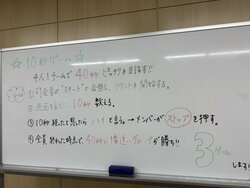 ☆10秒ゲーム☆
4人1チームで 40秒 ピッタリを目指す!!
① 司会者の"スタート"と合図し、カウントを開始する。
② 10秒 数える。
③ 10秒経ったと思ったら ハイ と言う。→メンバーが ストップ を押す。
④ 全員 終わった時点で、40秒に1番近いグループが勝ち!!
3ゲーム